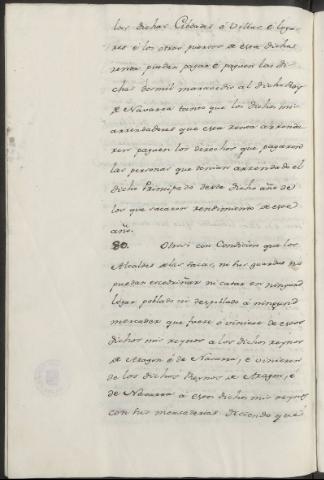 las dichas Cibdades ó Villas é Luga
res é los otros puertos de esta dicha
renta puedan pasar é paguen los di
chos dosmil maravedis al dicho Rey
de Navarra tanto que los dichos mis
arrendadores que esta renta arrenda
ren paguen los derechos que pagaron
las personas que tenian arrendada el
dicho Principado deste dicho año de
los que sacaron rendimiento de este
año.
80. Otrosi con Condicion que los
Alcaldes de las sacas, ni sus guardas no
puedan escodriñar ni catar en ningund
logar poblado ni despoblado á ningund
mercader que fuere ó viniere de estos
dichos mis reynos á los dichos reynos
de Aragon é de Navarra, é vinieren
de los dichos Reynos de Aragon, é
de Navarra á estos dichos mis reynos
con sus mercaderias. Diciendo que